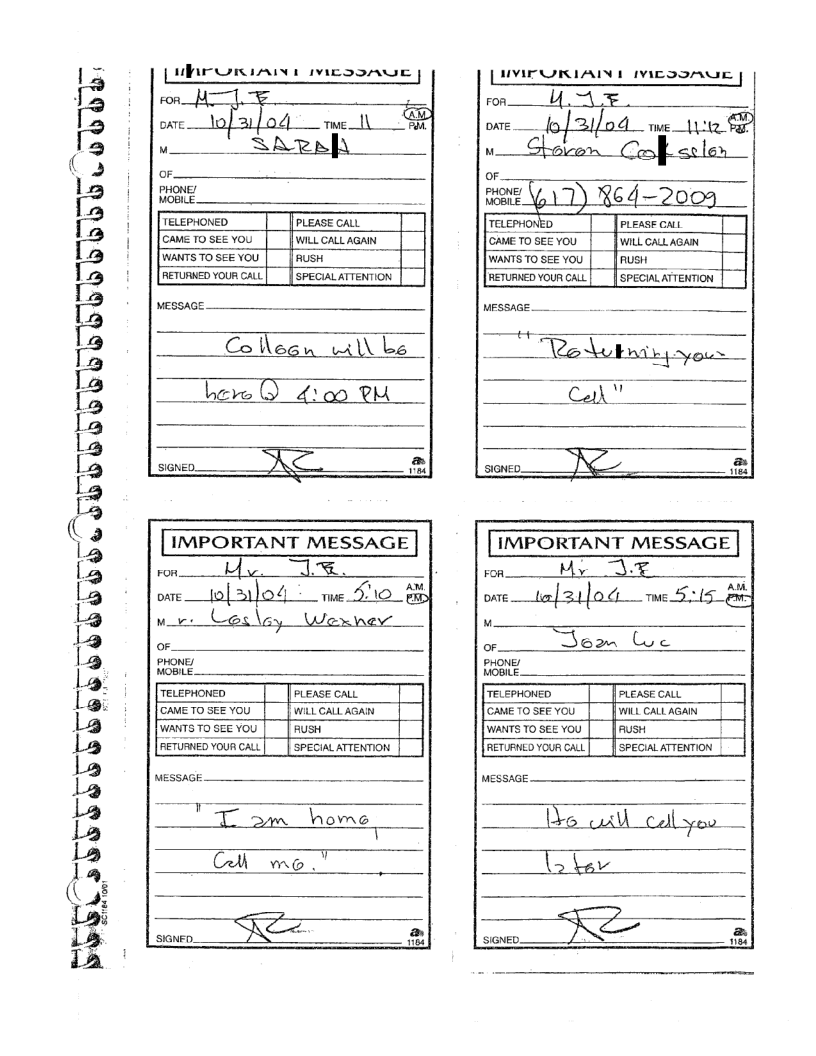 IMPORTANT MESSAGE
FOR M J.E
DATE 10/31/04 TIME 11 A.M. P.M.
M SARAH
OF
PHONE/
MOBILE
TELEPHONED PLEASE CALL
CAME TO SEE YOU WILL CALL AGAIN
WANTS TO SEE YOU RUSH
RETURNED YOUR CALL SPECIAL ATTENTION
MESSAGE
Colleen will be
here @ 4:00 PM
SIGNED
1184
IMPORTANT MESSAGE
FOR M. J.E.
DATE 10/31/04 TIME 11:12 A.M. P.M.
M Steven
OF
PHONE/
MOBILE (617) 864-2009
TELEPHONED PLEASE CALL
CAME TO SEE YOU WILL CALL AGAIN
WANTS TO SEE YOU RUSH
RETURNED YOUR CALL SPECIAL ATTENTION
MESSAGE
"Returning your
Call"
SIGNED
1184
IMPORTANT MESSAGE
FOR Mr. J.E.
DATE 10/31/04 TIME 5:10 A.M. P.M.
M r. Lesley Wexner
OF
PHONE/
MOBILE
TELEPHONED PLEASE CALL
CAME TO SEE YOU WILL CALL AGAIN
WANTS TO SEE YOU RUSH
RETURNED YOUR CALL SPECIAL ATTENTION
MESSAGE
"I am home,
Call me."
SIGNED
1184
IMPORTANT MESSAGE
FOR Mr J.E
DATE 10/31/04 TIME 5:15 A.M. P.M.
M
OF Jean Luc
PHONE/
MOBILE
TELEPHONED PLEASE CALL
CAME TO SEE YOU WILL CALL AGAIN
WANTS TO SEE YOU RUSH
RETURNED YOUR CALL SPECIAL ATTENTION
MESSAGE
He will call you
later
SIGNED
1184
SC1184 10/01